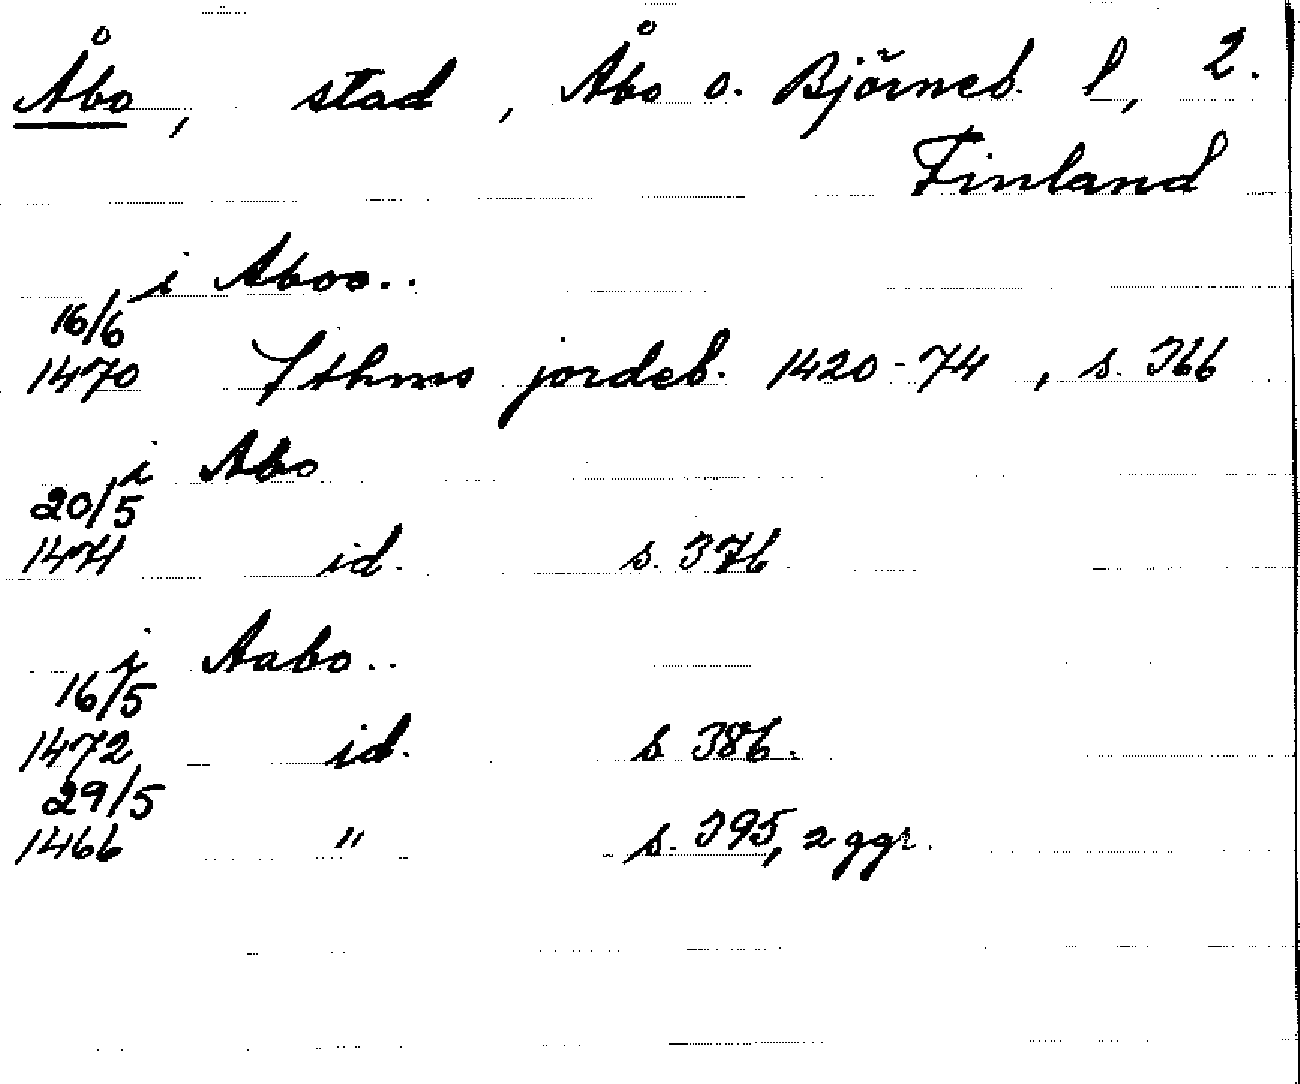 Åbo, stad, Åbo o. Björneb. l, 2.
Finland
i Aboo..
16/6
1470 Sthms jordeb. 1420-74, s. 366
i Abo
20/5
1471 id. s. 376
i Aabo..
16/5
1472 id. s 386.
29/5
1466 " s. 395, 2 ggr.